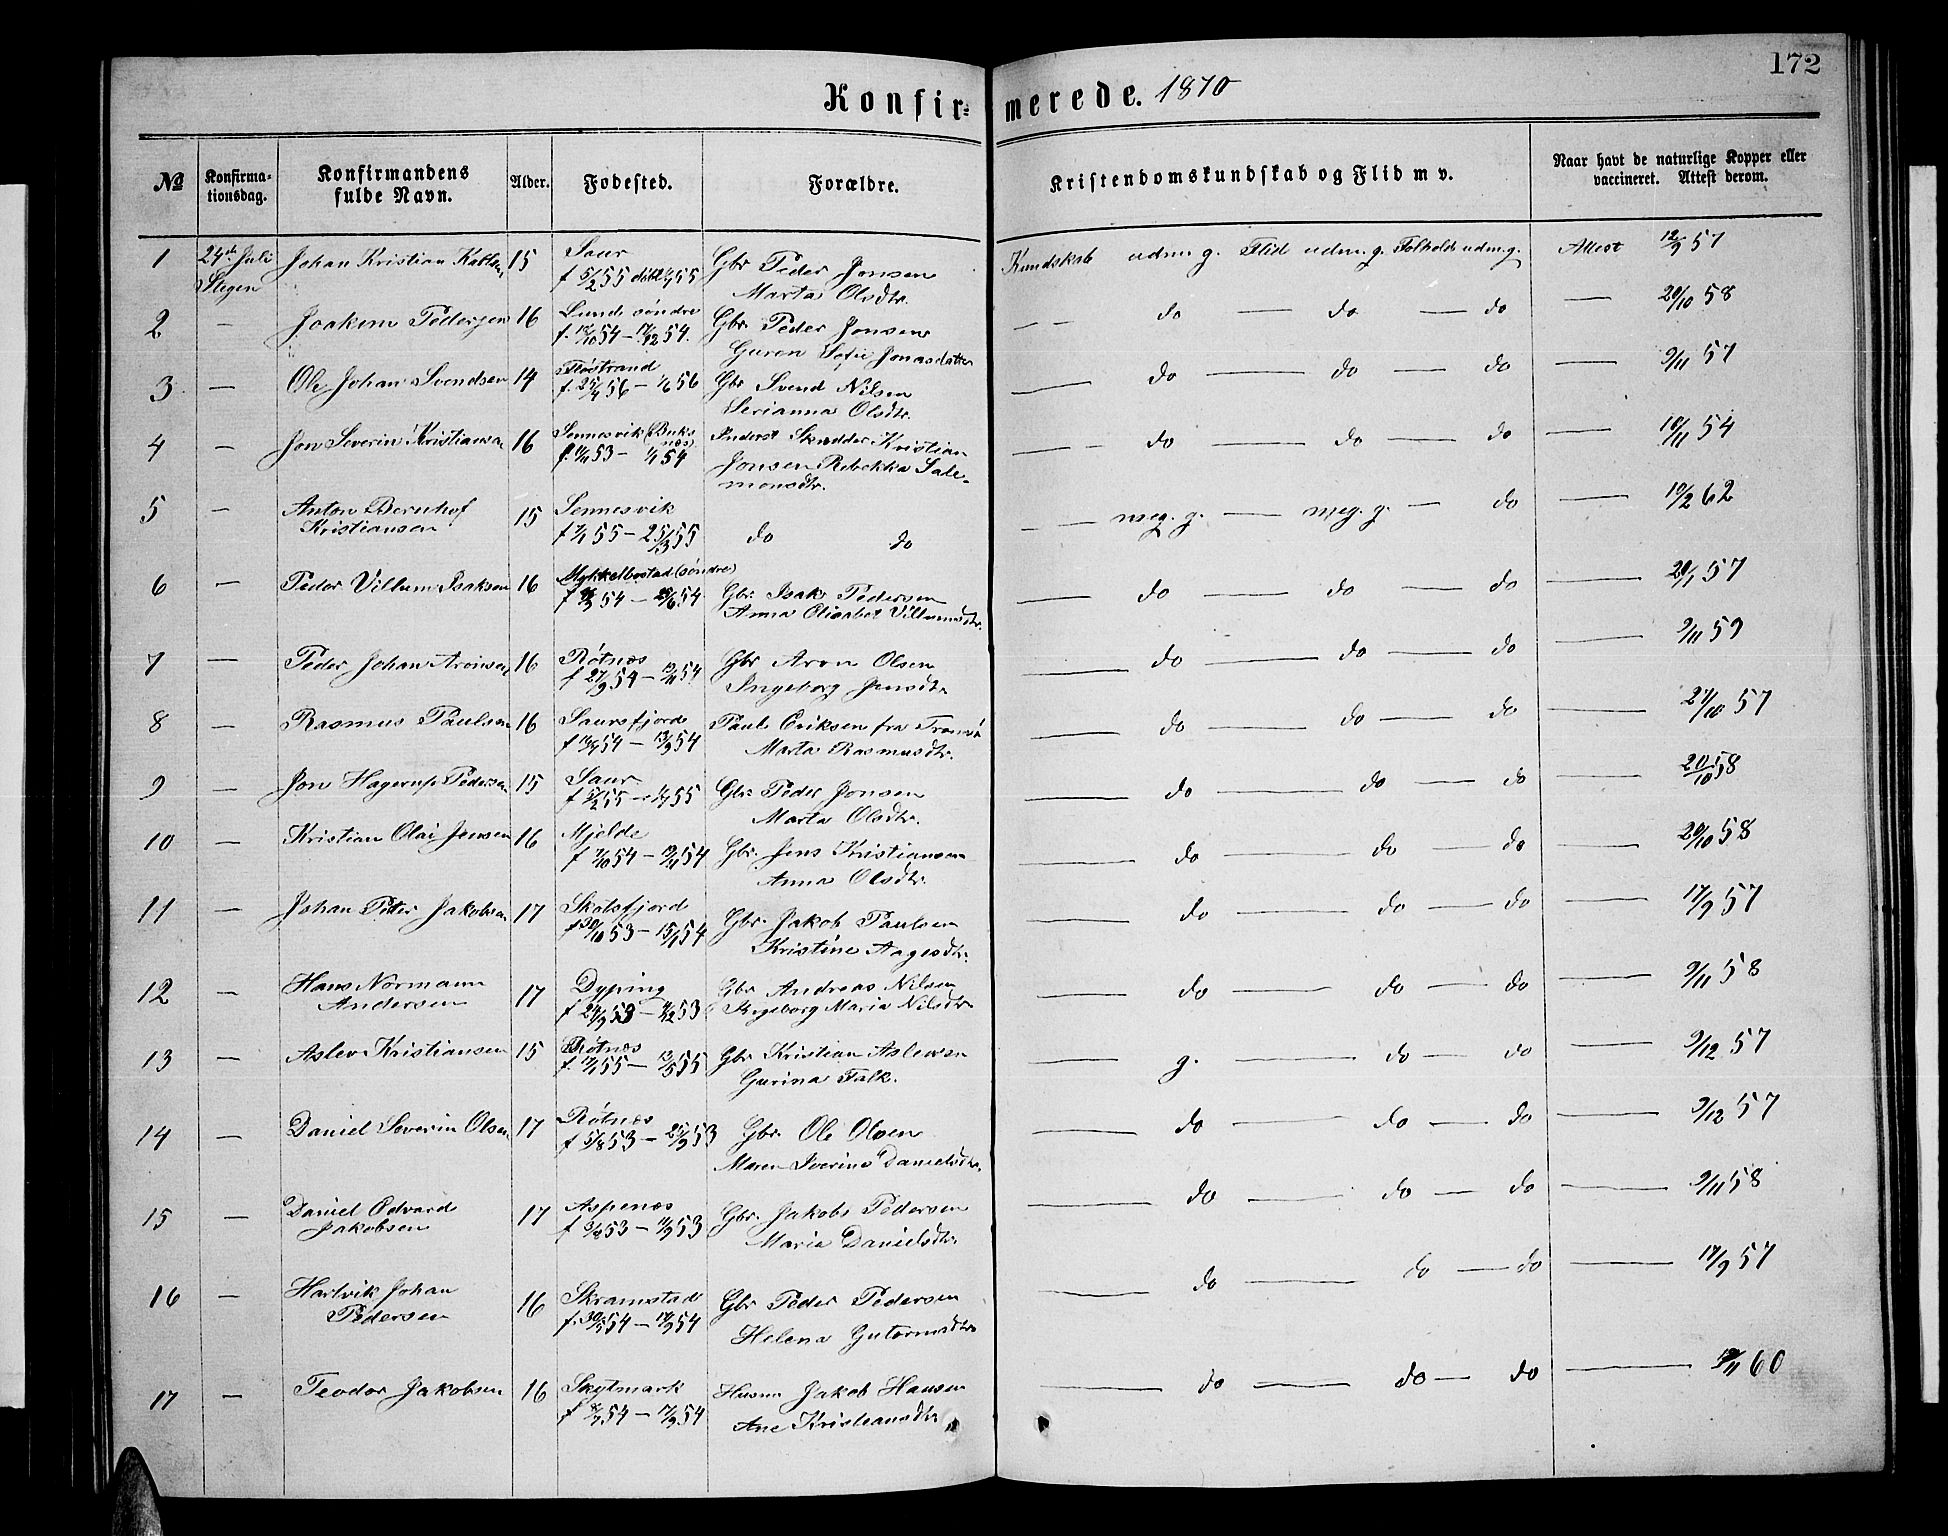 172
Konfirmerede. 1870
No
Konfirma-
tionsdag.
Konfirmandens
fulde Navn.
Alder.
Fødested.
Forældre.
Kristendomskundskab og Flid m v.
Naar havt de naturlige Kopper eller
vaccineret. Attest derom.
1 24de Juli Johan Kristian 15 Saur Gbr Peder Jonsen Kundskab udm. g. Flid udm. g. Forhold udm. g. Attest 12/9 57
Stegen f 5/2 55 Marta Olsdtr.
2 — Joakim Pedersen 16 Lund søndre Gbr. Peder Jonsen — — do — do — do — 20/10 58
f. 54 — 17/12 54. Guren Sofie Jonasdatter
3 — Ole Johan Svendsen 14 Flostrand Gbr Svend Nilsen — do — do — do — 9/11 57
f. 56 — 1/6 56 Serianna Olsdtr.
4 — Jon Severin Kristiansen 16 Sennesvik (Buks Inderst Skrædder Kristian — do — do — do — 10/11 54
næs)
f. 53 — 54 Jonsen Rebekka Sale-
monsdtr.
5 — Anton Bernhof 15 Sennesvik — — meg. g. — meg. g. — do — 10/2 62
Kristiansen f 55 — 25/3 55 do do
6 — Peder Villum Isaksen 16 Myklebostad (søndre) Gbr. Isak Pedersen — do — do — do — 57
f 54 — 54 Anna Elisabet Villumsdtr.
7 — Peder Johan Aronsen 16 Røtnæs Gbr Aron Olsen — do — do — do — 9/11 59
f 27/9 54 — 12/11 54 Ingeborg Jensdtr
8 — Rasmus Paulsen 16 Saursfjord Paul Eriksen fra Tromsø — do — do — do — 57
f 54 — 13/9 54 Marta Rasmusdtr.
9 — Jon Hagerup Pedersen 15 Saur Gbr. Peder Jonsen — do — do — do — 20/10 58
f 5/2 55 — 55 Marta Olsdtr.
10 — Kristian Olai Jensen 16 Mjelde Gbr. Jens Kristiansen — do — do — do — 20/10 58
f 7/10 54 — 12/11 54 Anna Olsdtr.
11 — Johan Peter Jakobsen 17 Skotsfjord Gbr. Jakob Paulsen — do — do — do — 17/9 57
f 30/10 53 — 15/1 54 Kristine Aagesdtr.
12 — Hans Normann 17 Dyping Gbr Andreas Nilsen — do — do — do — 9/11 58
Andersen f 24/9 53 — 53 Ingeborg Maria Nilsdtr
13 — Aslev Kristiansen 15 Røtnæs Gbr Kristian Aslevsen — g. — do — do — 9/12 57
f. 55 — 55 Gurina Falk.
14 — Daniel Severin Olsen 17 Røtnæs Gbr. Ole Olsen — do — do — do — 9/12 57
f 5/8 53 — 25/9 53 Maren Severine Danielsdtr.
15 — Daniel Edvard 17 Aspenæs Gbr. Jakob Pedersen — do — do — do — 9/11 58
Jakobsen f 53 — 53 Maria Danielsdtr.
16 — Hartvik Johan 16 Skramstad Gbr Peder Pedersen — do — do — do — 17/9 57
Pedersen f. 54 — 17/9 54 Helena Gutormsdtr
17 — Teodor Jakobsen 16 Skytmark Husm Jakob Hansen — do — do — do — 60
f 54 — 17/9 54 Ane Kristiansdtr